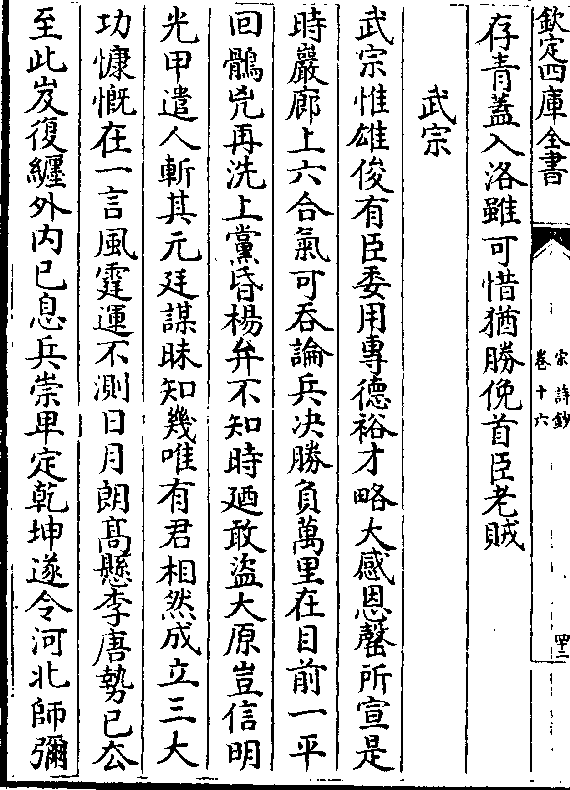 欽定四庫全書
宋詩鈔
卷十六
四三
存青蓋入洛雖可惜猶勝俛首臣老賊
武宗
武宗惟雄俊有臣委用專德裕才略大感恩罄所宣是
時巖廊上六合氣可吞論兵决勝負萬里在目前一平
回鶻兇再洗上黨昏楊弁不知時廼敢盜大原豈信明
光甲遣人斬其元廷謀昧知幾唯有君相然成立三大
功慷慨在一言風霆運不測日月朗髙懸李唐勢已厺
至此岌復纒外内已息兵崇卑定乾坤遂令河北師彌